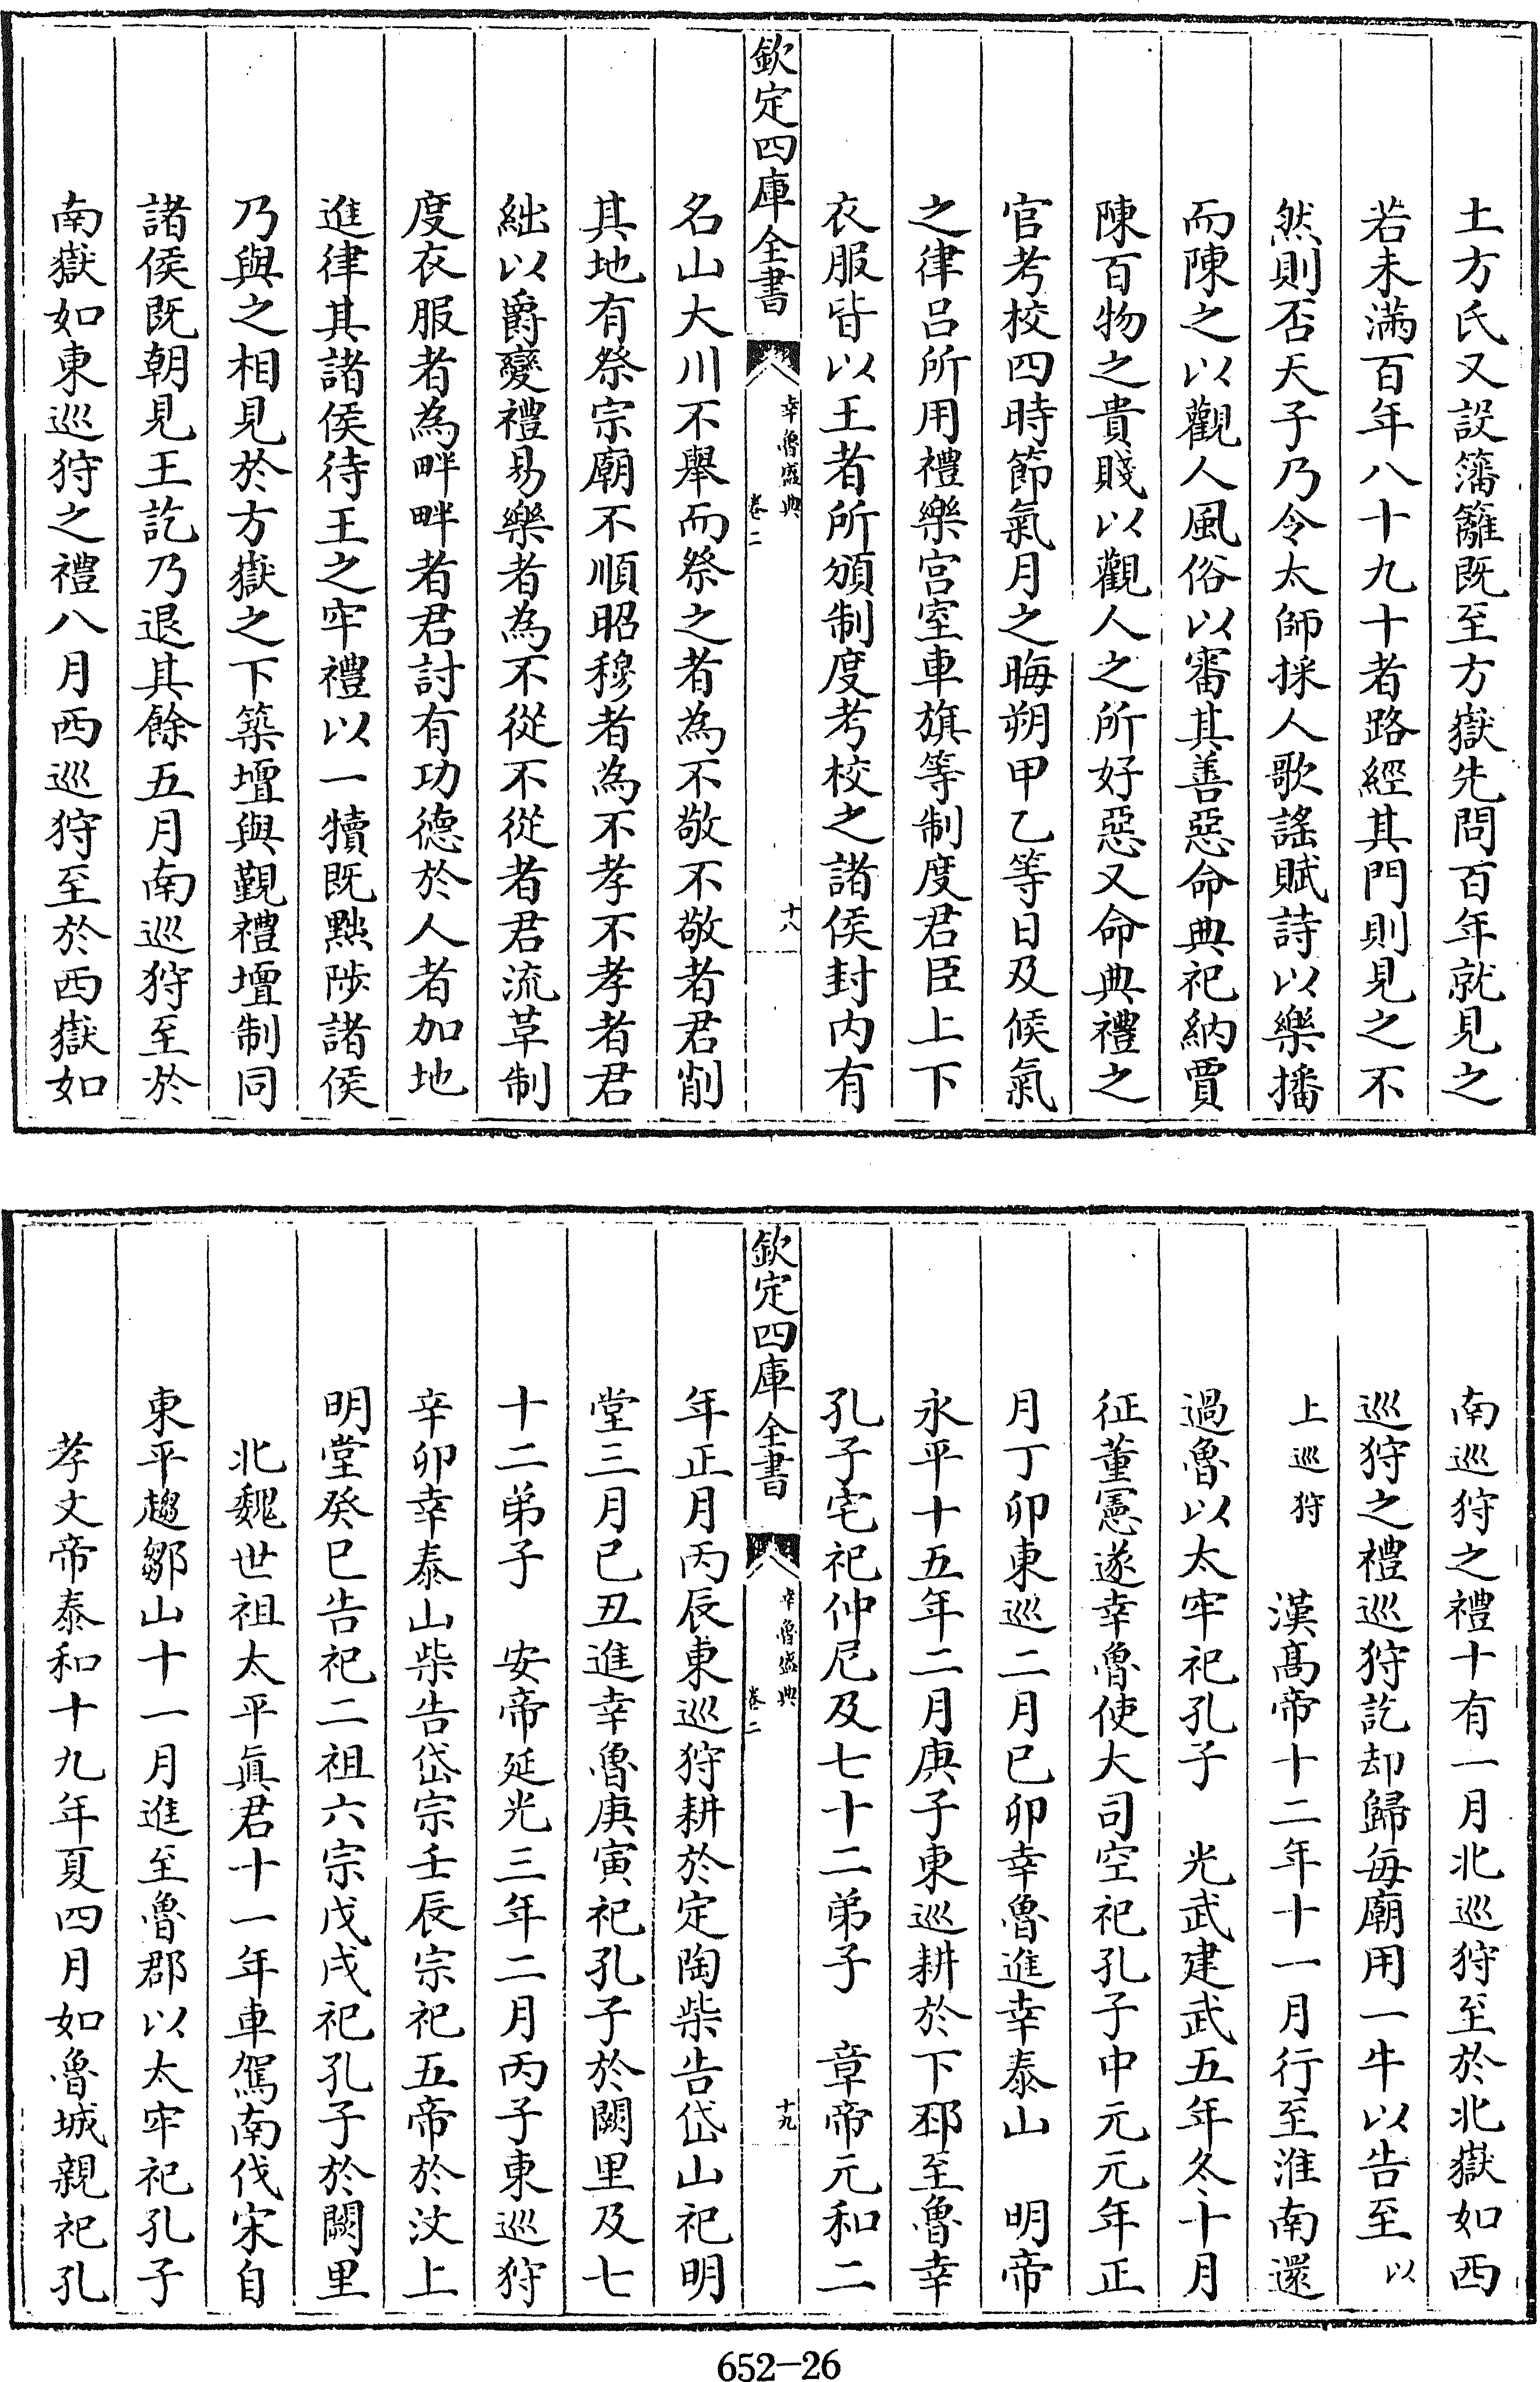 土方氏又設籓籬既至方嶽先問百年就見之
若未滿百年八十九十者路經其門則見之不
然則否天子乃令太師採人歌謠賦詩以樂播
而陳之以觀人風俗以審其善惡命典祀納賈
陳百物之貴賤以觀人之所好惡又命典禮之
官考校四時節氣月之晦朔甲乙等日及候氣
之律呂所用禮樂宫室車旗等制度君臣上下
衣服皆以王者所頒制度考校之諸侯封内有
欽定四庫全書
幸魯盛典
卷二
十八
名山大川不舉而祭之者為不敬不敬者君削
其地有祭宗廟不順昭穆者為不孝不孝者君
絀以爵變禮易樂者為不從不從者君流革制
度衣服者為畔畔者君討有功德於人者加地
進律其諸侯待王之牢禮以一犢既黜陟諸侯
乃與之相見於方嶽之下築壇與覲禮壇制同
諸侯既朝見王訖乃退其餘五月南巡狩至於
南嶽如東巡狩之禮八月西巡狩至於西嶽如
南巡狩之禮十有一月北巡狩至於北嶽如西
巡狩之禮巡狩訖却歸每廟用一牛以告至以
上巡狩　漢髙帝十二年十一月行至淮南還
過魯以太牢祀孔子　光武建武五年冬十月
征董憲遂幸魯使大司空祀孔子中元元年正
月丁卯東巡二月已卯幸魯進幸泰山　明帝
永平十五年二月庚子東巡耕於下邳至魯幸
孔子宅祀仲尼及七十二弟子　章帝元和二
欽定四庫全書
幸魯盛典
卷二
十九
年正月丙辰東巡狩耕於定陶柴告岱山祀明
堂三月已丑進幸魯庚寅祀孔子於闕里及七
十二弟子　安帝延光三年二月丙子東巡狩
辛卯幸泰山柴告岱宗壬辰宗祀五帝於汶上
明堂癸巳告祀二祖六宗戊戌祀孔子於闕里
北魏世祖太平眞君十一年車駕南伐宋自
東平趨鄒山十一月進至魯郡以太牢祀孔子
孝文帝泰和十九年夏四月如魯城親祀孔
652-26